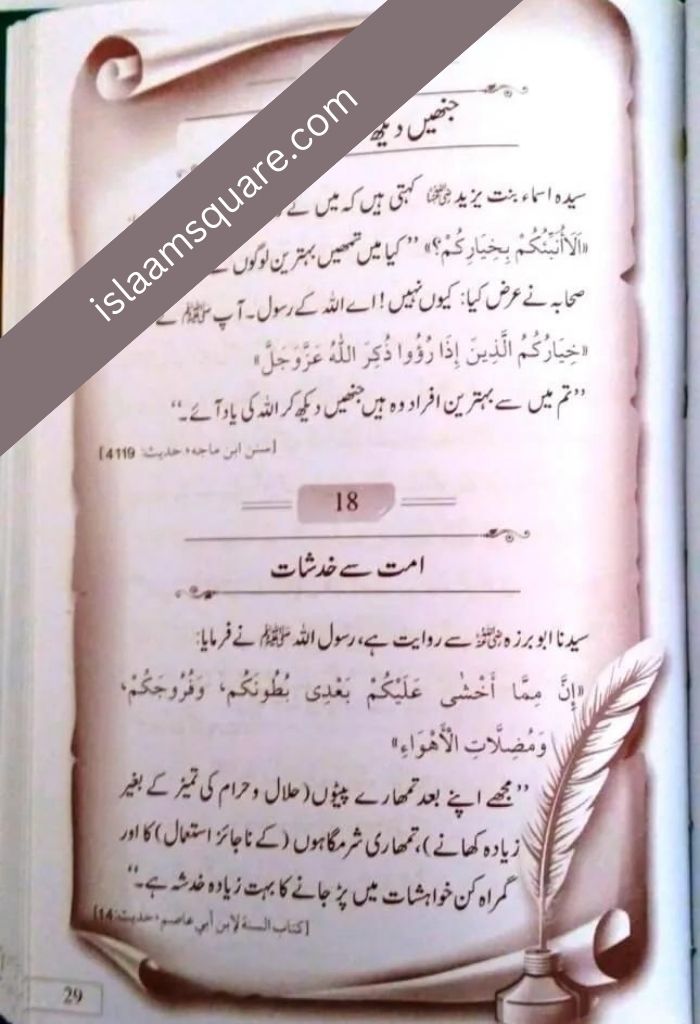 islaamsquare.com
جنھیں دیکھ
سیدہ اسماء بنت یزید رضی اللہ عنہا کہتی ہیں کہ میں نے
«اَلَا أُنَبِّئُكُمْ بِخِيَارِكُمْ؟» ”کیا میں تمھیں بہترین لوگوں کے
صحابہ نے عرض کیا: کیوں نہیں! اے اللہ کے رسول۔ آپ ﷺ نے
«خِيَارُكُمُ الَّذِينَ إِذَا رُؤُوا ذُكِرَ اللّٰهُ عَزَّوَجَلَّ»
”تم میں سے بہترین افراد وہ ہیں جنھیں دیکھ کر اللہ کی یاد آئے۔“
[سنن ابن ماجه، حديث: 4119]
18
امت سے خدشات
سیدنا ابو برزہ رضی اللہ عنہ سے روایت ہے، رسول اللہ ﷺ نے فرمایا:
«إِنَّ مِمَّا أَخْشٰى عَلَيْكُمْ بَعْدِى بُطُونَكُم، وَفُرُوجَكُمْ،
وَمُضِلَّاتِ الْأَهْوَاءِ»
”مجھے اپنے بعد تمھارے پیٹوں (حلال و حرام کی تمیز کے بغیر
زیادہ کھانے)، تمھاری شرمگاہوں (کے ناجائز استعمال) کا اور
گمراہ کن خواہشات میں پڑ جانے کا بہت زیادہ خدشہ ہے۔“
[كتاب السنة لابن أبي عاصم، حديث: 14]
29